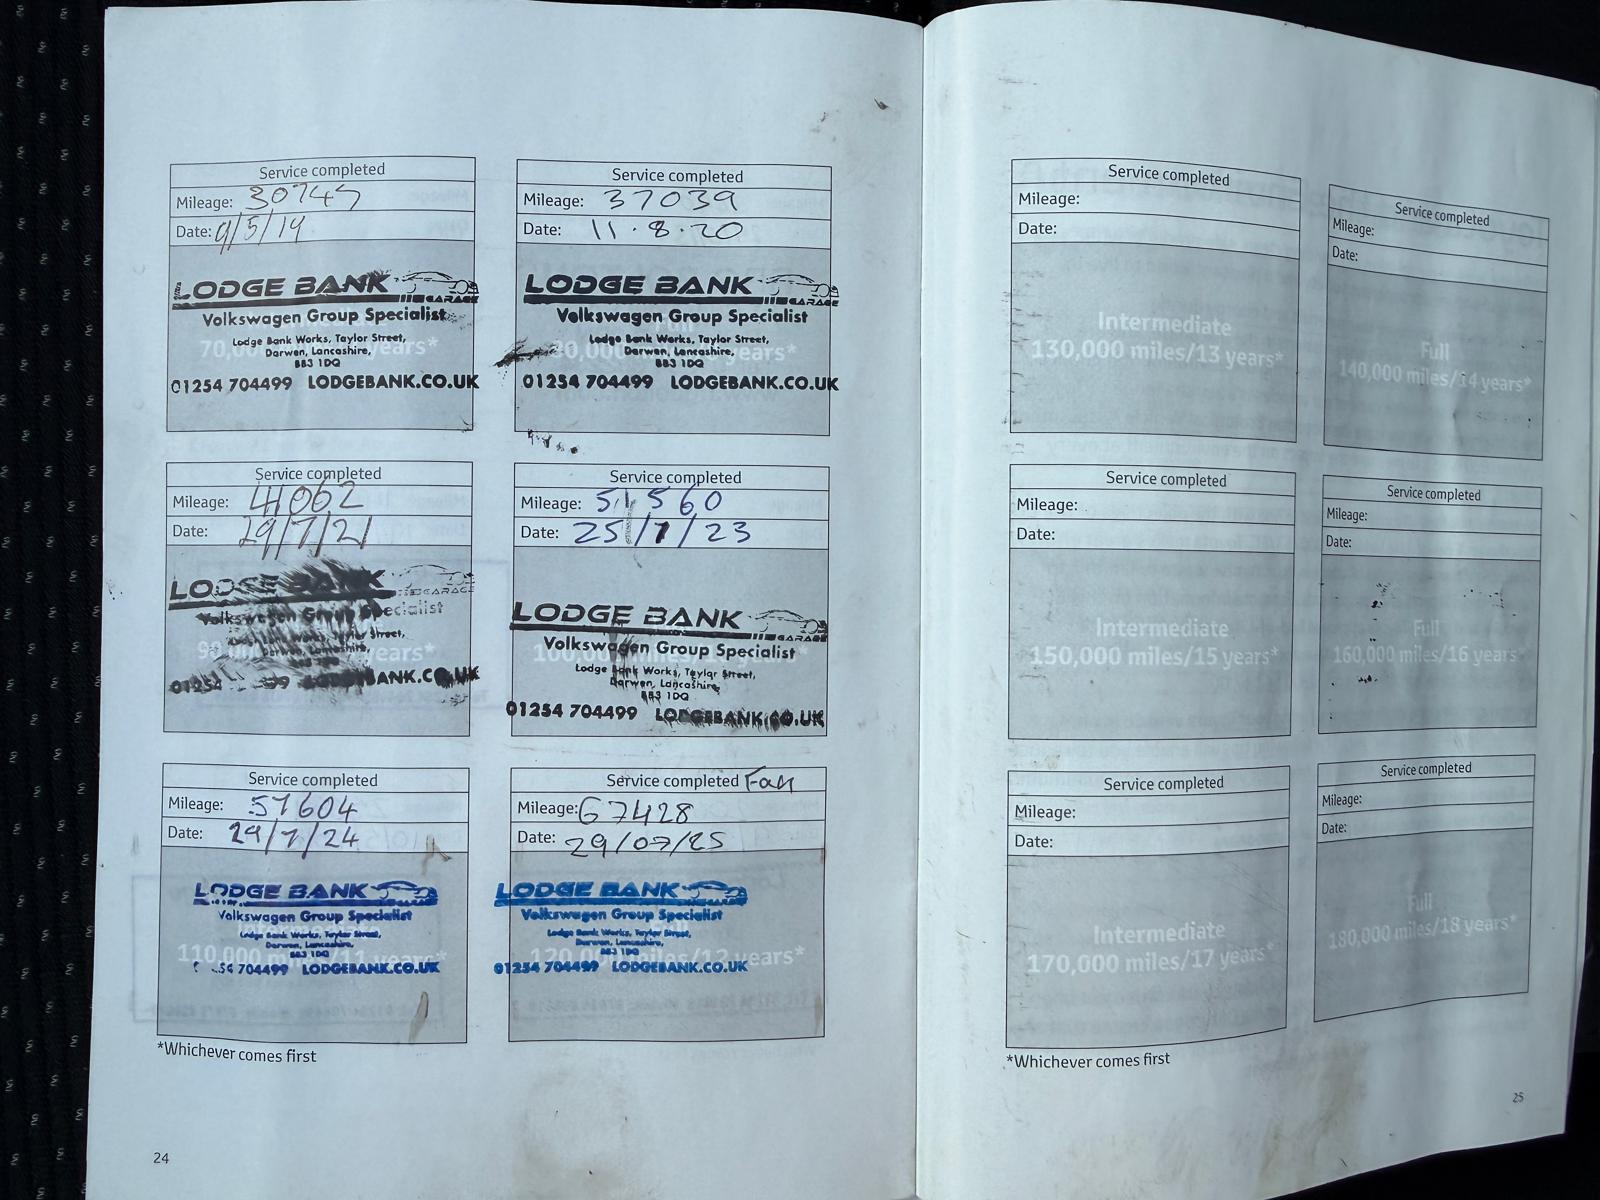 Service completed
Mileage: 30745
Date: 9/5/19
LODGE BANK
GARAGE
Volkswagen Group Specialist
Lodge Bank Works, Taylor Street,
Darwen, Lancashire,
BB3 1DQ
70,000 years*
01254 704499 LODGEBANK.CO.UK
Service completed
Mileage: 37039
Date: 11.8.20
LODGE BANK
GARAGE
Volkswagen Group Specialist
Full
Lodge Bank Works, Taylor Street,
Darwen, Lancashire,
BB3 1DQ
years*
01254 704499 LODGEBANK.CO.UK
Service completed
Mileage: 41062
Date: 29/7/21
LODGE BANK
GARAGE
Volkswagen Group Specialist
Street,
Darwen, Lancashire,
years*
01254 BANK.CO.UK
Service completed
Mileage: 51560
Date: 25/7/23
LODGE BANK
GARAGE
Volkswagen Group Specialist
Lodge Bank Works, Taylor Street,
Darwen, Lancashire,
BB3 1DQ
01254 704499 LODGEBANK.CO.UK
Service completed
Mileage: 57604
Date: 29/7/24
LODGE BANK
Volkswagen Group Specialist
Lodge Bank Works, Taylor Street,
Darwen, Lancashire,
BB3 1DQ
110,000 miles/11 years*
54 704499 LODGEBANK.CO.UK
Service completed
Mileage: 67428
Date: 29/07/25
LODGE BANK
GARAGE
Volkswagen Group Specialist
Lodge Bank Works, Taylor Street,
Darwen, Lancashire,
BB3 1DQ
120,000 miles/12 years*
01254 704499 LODGEBANK.CO.UK
*Whichever comes first
24
Service completed
Mileage:
Date:
Intermediate
130,000 miles/13 years*
Service completed
Mileage:
Date:
Full
140,000 miles/14 years*
Service completed
Mileage:
Date:
Intermediate
150,000 miles/15 years*
Service completed
Mileage:
Date:
Full
160,000 miles/16 years*
Service completed
Mileage:
Date:
Intermediate
170,000 miles/17 years*
Service completed
Mileage:
Date:
Full
180,000 miles/18 years*
*Whichever comes first
25